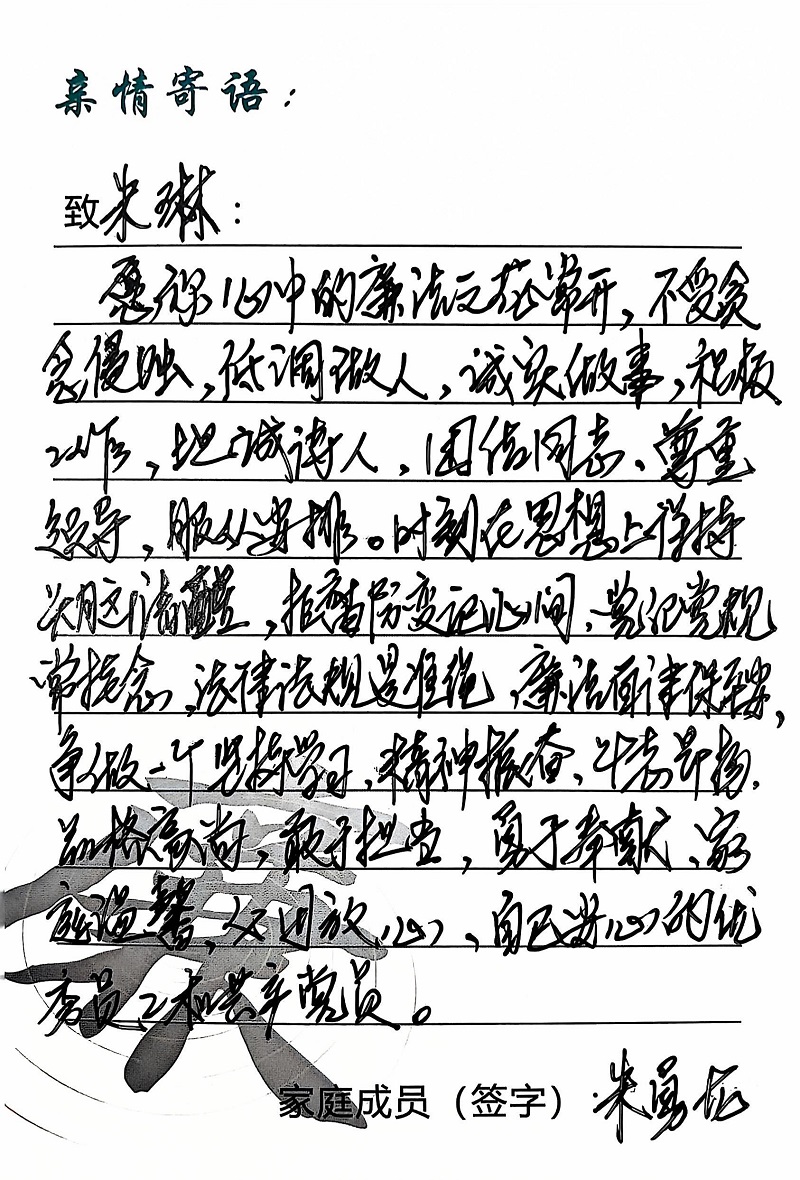 亲情寄语：
致朱琳：
愿你心中的廉洁之花常开，不受贪
念侵蚀，低调做人，诚实做事，积极
工作，坦诚待人，团结同志、尊重
领导，服从安排。时刻在思想上保持
头脑清醒，拒腐防变记心间，党纪党规
常挂念，法律法规是准绳，廉洁自律保平安，
争做一个坚持学习、精神振奋、斗志昂扬、
品格高尚，敢于担当，勇于奉献、家
庭温馨，父母放心，自己安心的优
秀员工和共产党员。
家庭成员（签字）：朱勇